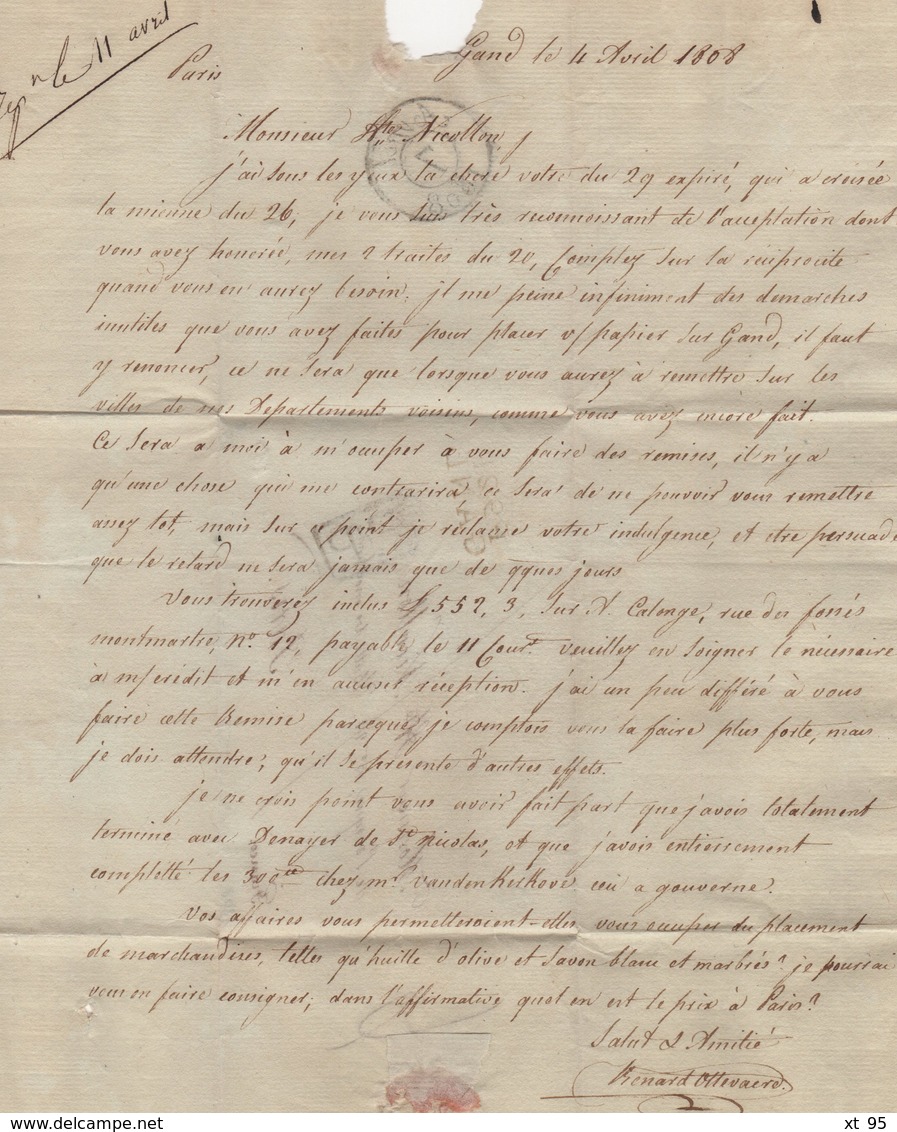 le 11 avril
Paris
Gand le 4 Avril 1808
Monsieur hte Nicollon,
j'ai sous les yeux la chere votre du 29 expiré, qui a croisée
la mienne du 26; je vous suis très reconnoissant de l'acceptation dont
vous avez honorée, mes 2 traites du 20, Comptez sur la réciprocité
quand vous en aurez besoin; jl me peine infiniment des demarches
inutiles que vous avez faites pour placer v/ papier sur Gand, il faut
y renoncer, ce ne sera que lorsque vous aurez à remettre sur les
villes de nos Departements voisins, comme vous avez encore fait.
Ce sera a moi à m'occuper à vous faire des remises, il n'y a
qu'une chose qui me contrarira, ce sera de ne pouvoir vous remettre
assez tot, mais sur ce point je reclame votre indulgence, et etre persuadé
que le retard ne sera jamais que de qques jours
Vous trouverez inclus £ 552, 3, sur N. Calonge, rue du fossés
montmartre, no. 12, payable le 11 Cour.t veuillez en soigner le nécessaire
à m/ crédit et m'en accuser réception. j'ai un peu différé à vous
faire cette Remise parceque je comptois vous la faire plus forte, mais
je dois attendre; qu'il se présente d'autres effets.
je ne crois point vous avoir fait part que j'avois totalement
terminé avec Denayer de St. nicolas, et que j'avois entierement
complétté les 300 ce chez mr. vanden Kerkove ceci a gouverne.
Vos affaires vous permetteroient-elles vous occuper du placement
de marchandises, telles qu'huille d'olive et savon blanc et marbrés? je pourrai
vous en faire consigner; dans l'affirmative quel en est le prix à Paris?
Salut & Amitié
Renard Ottevaere.
xt 95